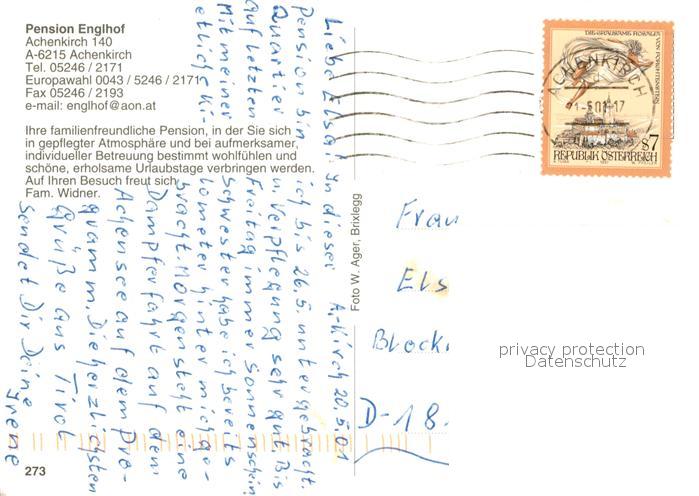 Pension Englhof
Achenkirch 140
A-6215 Achenkirch
Tel. 05246 / 2171
Europawahl 0043 / 5246 / 2171
Fax 05246 / 2193
e-mail: englhof@aon.at
Ihre familienfreundliche Pension, in der Sie sich
in gepflegter Atmosphäre und bei aufmerksamer,
individueller Betreuung bestimmt wohlfühlen und
schöne, erholsame Urlaubstage verbringen werden.
Auf Ihren Besuch freut sich
Fam. Widner.
A.-Kirch 20.5.01
Liebe Elsa! In dieser
Pension bin ich bis 26.5. untergebracht.
Quartier u. Verpflegung sehr gut. Bis
auf letzten Freitag immer Sonnenschein.
Mit meiner Schwester habe ich bereits
etliche Ki-
lometer hinter mich ge-
bracht. Morgen steht eine
Dampferfahrt auf dem
Achensee auf dem Pro-
gramm. Die herzlichsten
Grüße aus Tirol
sendet Dir Deine
Irene
Foto W. Ager, Brixlegg
273
DIE GRAUSAME ROSALIA
VON FORCHTENSTEIN
ACHENKIRCH
REPUBLIK ÖSTERREICH
S7
Frau
Els
Block
D-18.
privacy protection
Datenschutz